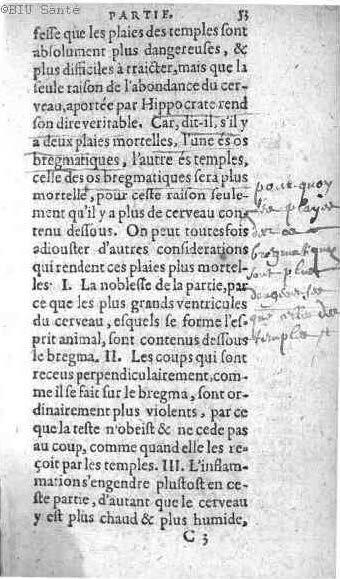 ©BIU Santé
PARTIE. 53
fesse que les plaies des temples sont
absolument plus dangereuses, &
plus difficiles à traicter, mais que la
seule raison de l'abondance du cer-
veau, aportée par Hippocrate rend
son dire veritable. Car, dit-il, s'il y
a deux plaies mortelles, l'une és os
bregmatiques, l'autre és temples,
celle des os bregmatiques sera plus
mortelle, pour ceste raison seule-
ment qu'il y a plus de cerveau con-
tenu dessous. On peut toutesfois
adiouster d'autres considerations
qui rendent ces plaies plus mortel-
les. I. La noblesse de la partie, par
ce que les plus grands ventricules
du cerveau, esquels se forme l'es-
prit animal, sont contenus dessous
le bregma. II. Les coups qui sont
receus perpendiculairement, com-
me il se fait sur le bregma, sont or-
dinairement plus violents, par ce
que la teste n'obeist & ne cede pas
au coup, comme quand elle les re-
çoit par les temples. III. L'inflam-
mations s'engendre plustost en ce-
ste partie, d'autant que le cerveau
y est plus chaud & plus humide,
C 3
pourquoy
les playes
des os
bregmatiques
sont plus
dangereuses
que celles des
temples